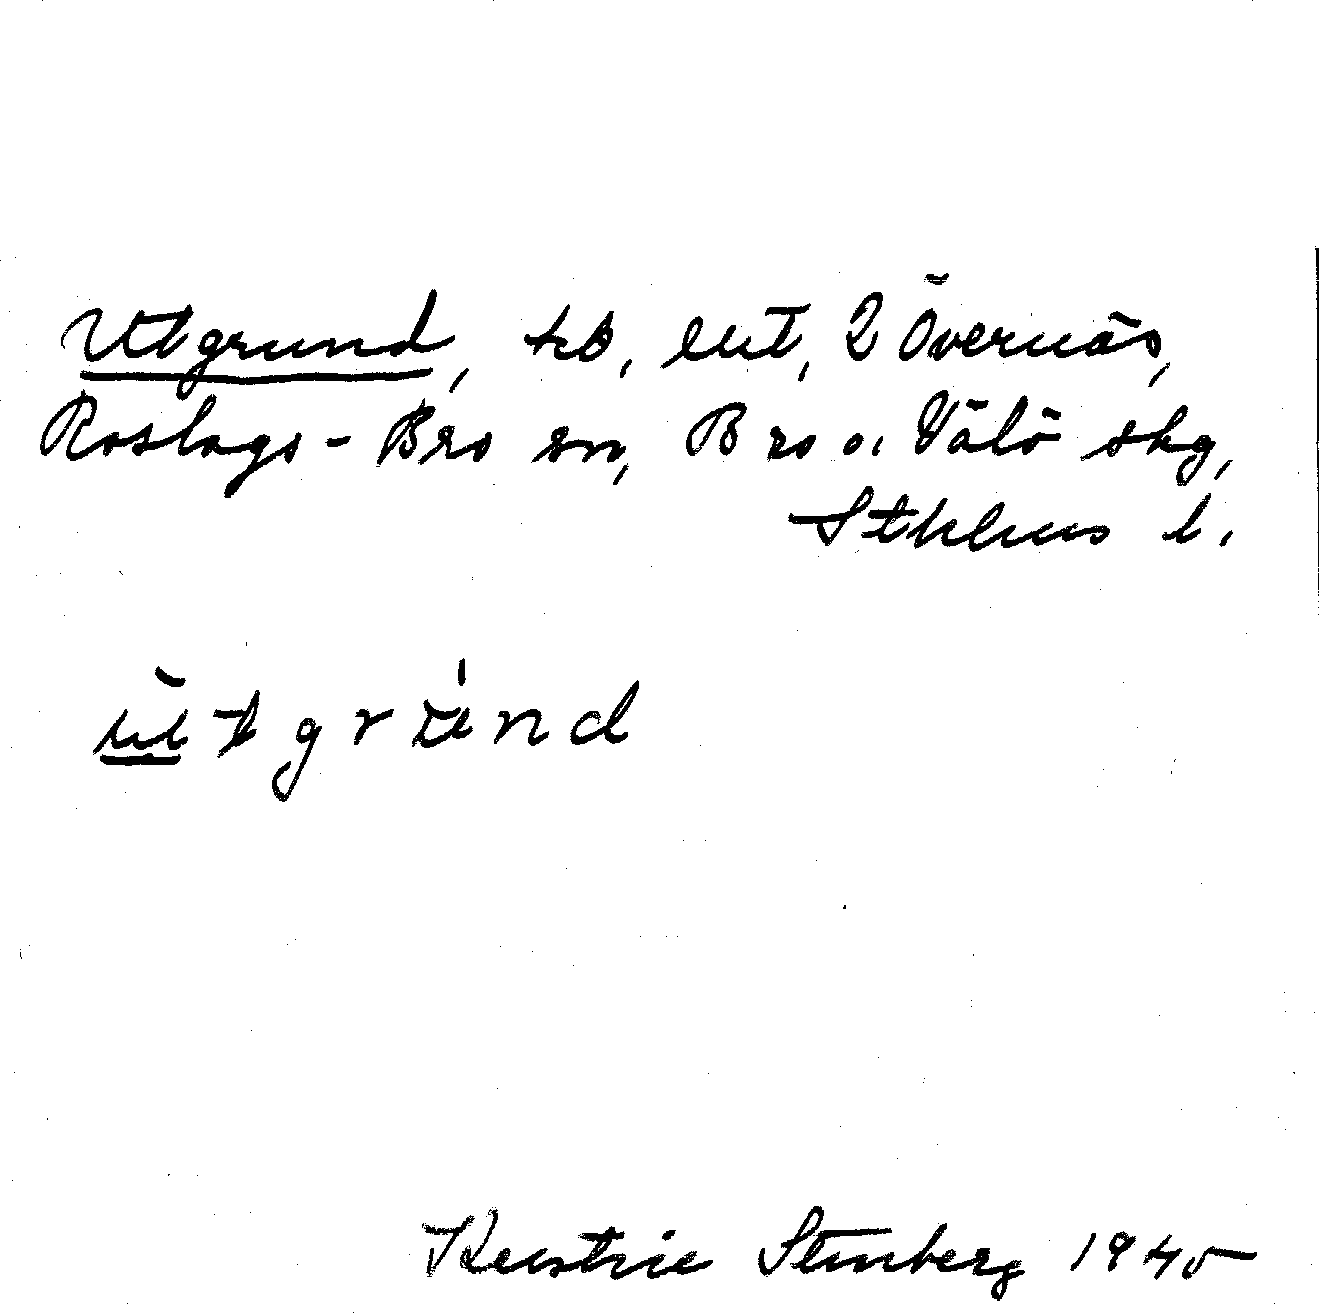 Utgrund, tb, enl, 2 Övernäs,
Roslags-Bro sn, Bro o. Vätö skg,
Sthlms l.
ùtgrúnd
Kerstin Stenberg 1945